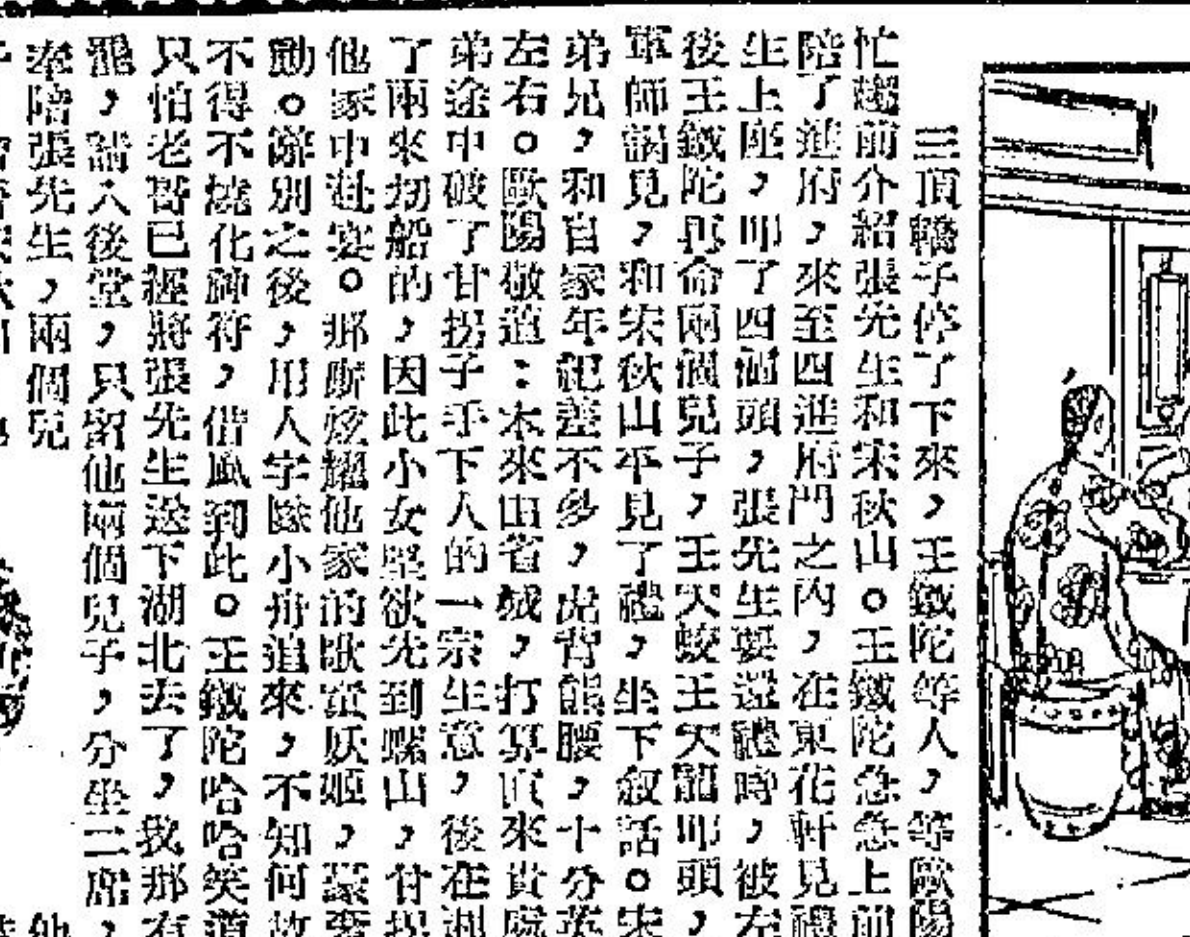 三頂轎子停了下來，王鐵陀等人，等歐陽
忙趨前介紹張先生和宋秋山。王鐵陀急急上前
陪了進府，來至四進府門之內，在東花軒見禮
生上座，叩了四個頭，張先生要還禮時，被左
後王鐵陀再命兩個兒子，王天蛟王天龍叩頭，
軍師謁見，和宋秋山平見了禮，坐下敘話。宋
弟兄，和自家年紀差不多，虎背熊腰，十分英
左右。歐陽敬道：本來由省城，打算直來貴處
弟途中破了甘拐子手下人的一宗生意，後在湘
了兩來刧船的，因此小女堅欲先到螺山，甘拐
他家中赴宴。那廝炫耀他家的歌童妖姬，豪奢
動。辭別之後，用人字除小舟追來，不知何故
不得不燒化神符，借風到此。王鐵陀哈哈笑道
只怕老哥已經將張先生送下湖北去了，我那有
罷，請入後堂，只留他兩個兒子，分坐二席，
奉陪張先生，兩個兒